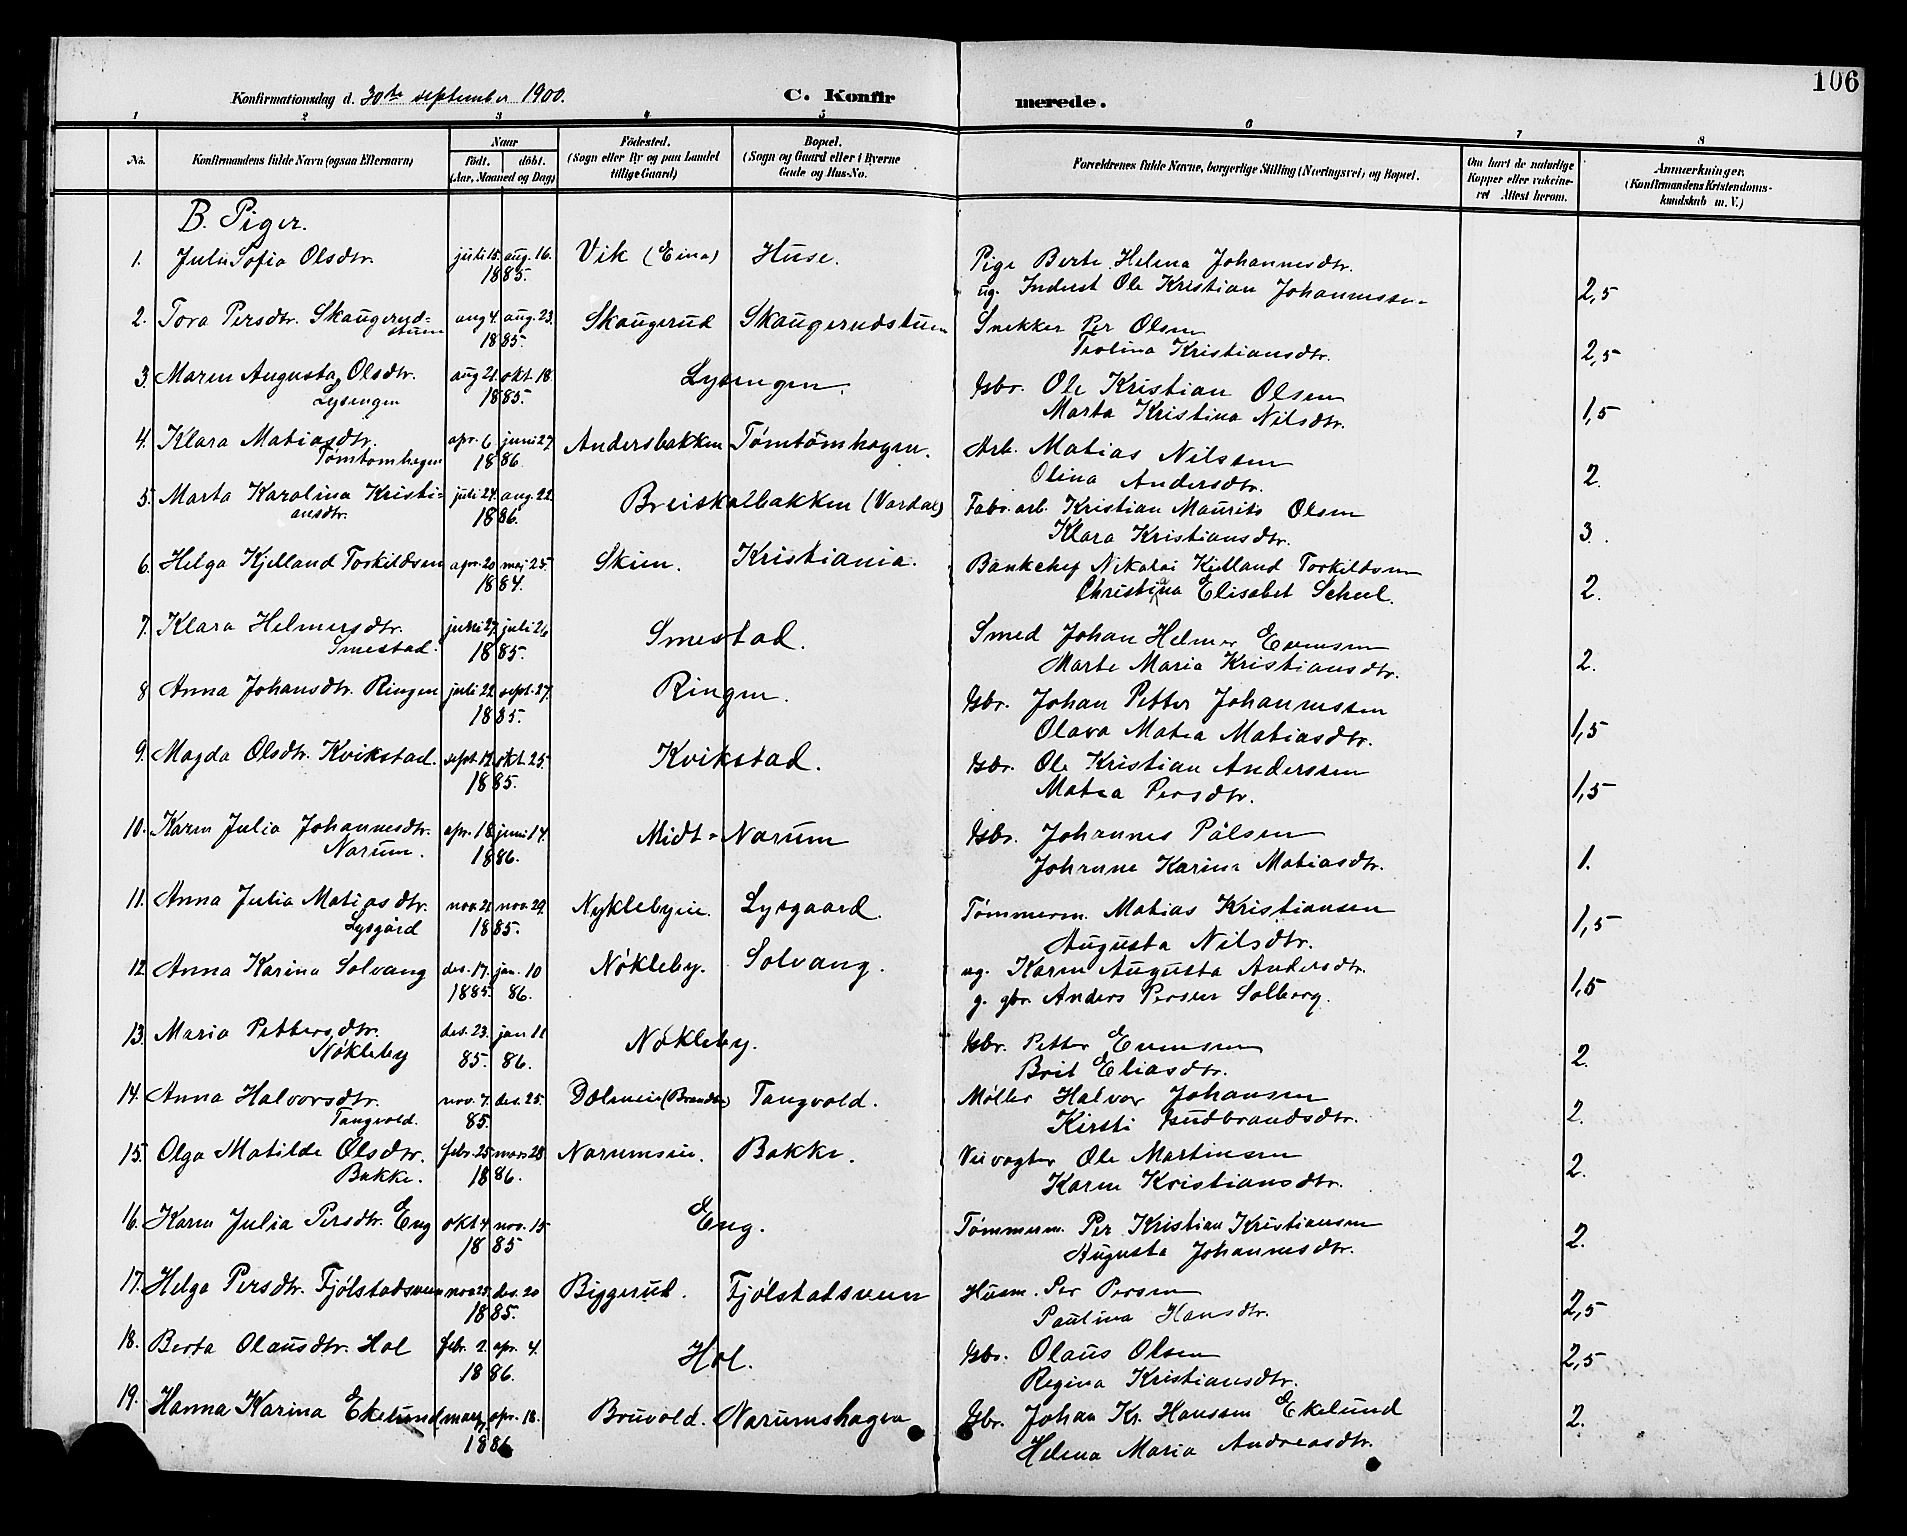 106
Konfirmationsdag d. 30te september 1900.
C. Konfirmerede.
1 2 3 4 5 6 7 8
No. Konfirmandens fulde Navn (ogsaa Efternavn) Naar Født. døbt. (Aar, Maaned og Dag) Fødested. (Sogn eller By og paa Landet tillige Gaard) Bopæl. (Sogn og Gaard eller i Byerne Gade og Hus-No. Forældrenes fulde Navne, borgerlige Stilling (Næringsvei) og Bopæl. Om havt de naturlige Kopper eller vakcineret Attest herom. Anmærkninger, (Konfirmandens Kristendomskundskab m. V.)
B. Piger.
1. Julie Sofia Olsdtr. juli 15. aug. 16. Vik (Eina) Huse. Pige Berte Helena Johannesdtr.
1885. ug. Inderst Ole Kristian Johannessen 2,5
2. Tora Persdtr. Skaugerud- aug 4. aug. 23. Skaugerud Skaugerudstuen Snekker Per Olsen
stuen 1885. Teolina Kristiansdtr. 2,5
3. Maren Augusta Olsdtr. aug 21. okt. 18 Lysengen. Gbr. Ole Kristian Olsen
Lysengen 1885. Marta Kristina Nilsdtr. 1,5
4. Klara Matiasdtr. apr. 6 juni 27 Andersbakken Tømtømhagen. Arb. Matias Nilssen
Tømtømhagen 1886. Olina Andersdtr. 2.
5. Marta Karolina Kristi- juli 24. aug. 22. Breiskalbakken (Vardal) Fabr. arb. Kristian Maurits Olsen
ansdtr. 1886. Klara Kristiansdtr. 3.
6. Helga Kjelland Torkildsen apr. 20 maj 25. Skien. Kristiania. Bankchef Nikolai Kjelland Torkildsen
1884. Christina Elisabet Scheel. 2.
7. Klara Helmersdtr. juni 27. juli 26 Smestad. Smed Johan Helmer Evensen
Smestad. 1885. Marte Maria Kristiansdtr. 2.
8 Anna Johansdtr. Ringen juli 22 sept. 27. Ringen. Gbr. Johan Petter Johannessen
1885. Olava Matea Matiasdtr. 1,5
9. Magda Olsdtr. Kvikstad. sept. 12. okt. 25. Kvikstad. Gbr. Ole Kristian Anderssen
1885. Matea Persdtr. 1,5
10. Karen Julia Johannesdtr. apr. 18. juni 14. Midt-Narum Gbr. Johannes Pålsen
Narum. 1886. Johanne Karina Matiasdtr. 1.
11. Anna Julia Matiasdtr. nov. 21. nov. 29. Nyklebyeie. Lysgaard. Tømmerm. Matias Kristiansen
Lysgård 1885. Augusta Nilsdtr. 1,5
12 Anna Karina Solvang des. 17. jan. 10 Nøkleby. Solvang. ug. Karen Augusta Andersdtr.
1885. 86. g. gbr. Anders Persen Solberg. 1,5
13. Maria Pettersdtr. des. 23. jan. 11 Nøkleby. Gbr. Petter Evensen
Nøkleby 85. 86. Brit Eliasdtr. 2.
14. Anna Halvorsdtr. nov. 7. des. 25. Dæleneie (Brandbu) Tangvold. Møller Halvor Johansen
Tangvold. 85. Kirsti Gudbrandsdtr. 2.
15. Olga Matilde Olsdtr. febr. 25. mars 28 Narumseie. Bakke. Veivogter Ole Martinsen
Bakke. 1886. Karen Kristiansdtr. 2.
16. Karen Julia Persdtr. Eng okt 4 nov. 15 Eng. Tømmerm. Per Kristian Kristiansen
1885 Augusta Johannesdtr. 2.
17. Helga Persdtr. Fjølstadsveen nov 25. des. 20 Biggerud. Fjølstadsveen Husm. Per Persen
1885. Paulina Hansdtr. 2,5
18. Berta Olausdtr. Hol febr. 2. apr. 4. Hol. Gbr. Olaus Olsen
1886. Regina Kristiansdtr. 2,5
19. Hanna Karina Ekelund mars apr. 18. Bruvold. Narumshagen Gbr. Johan Kr. Hanssen Ekelund
1886 Helena Maria Andreasdtr. 2.